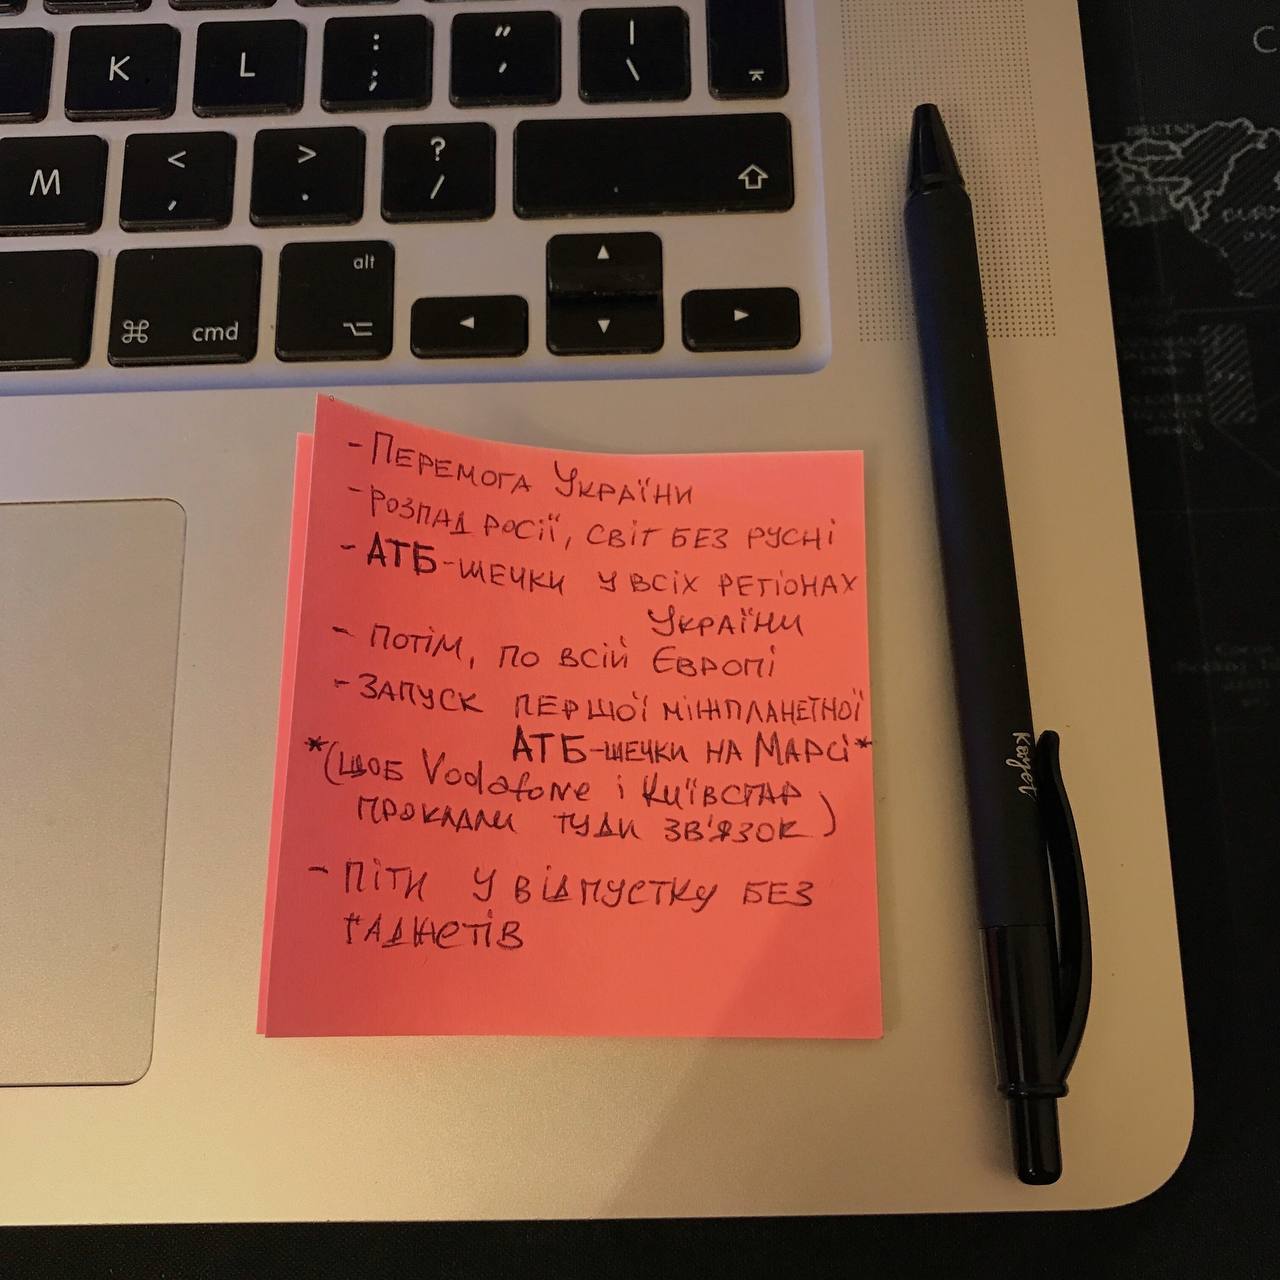 K
L
:
;
"
'
|
\
M
<
,
>
.
?
/
alt
cmd
- Перемога України
- розпад росії, світ без русні
- АТБ-шечки у всіх регіонах
України
- потім, по всій Європі
- Запуск першої міжпланетної
АТБ-шечки на Марсі*
*(щоб Vodafone і Київстар
проклали туди зв'язок)
- Піти у відпустку без
ґаджетів